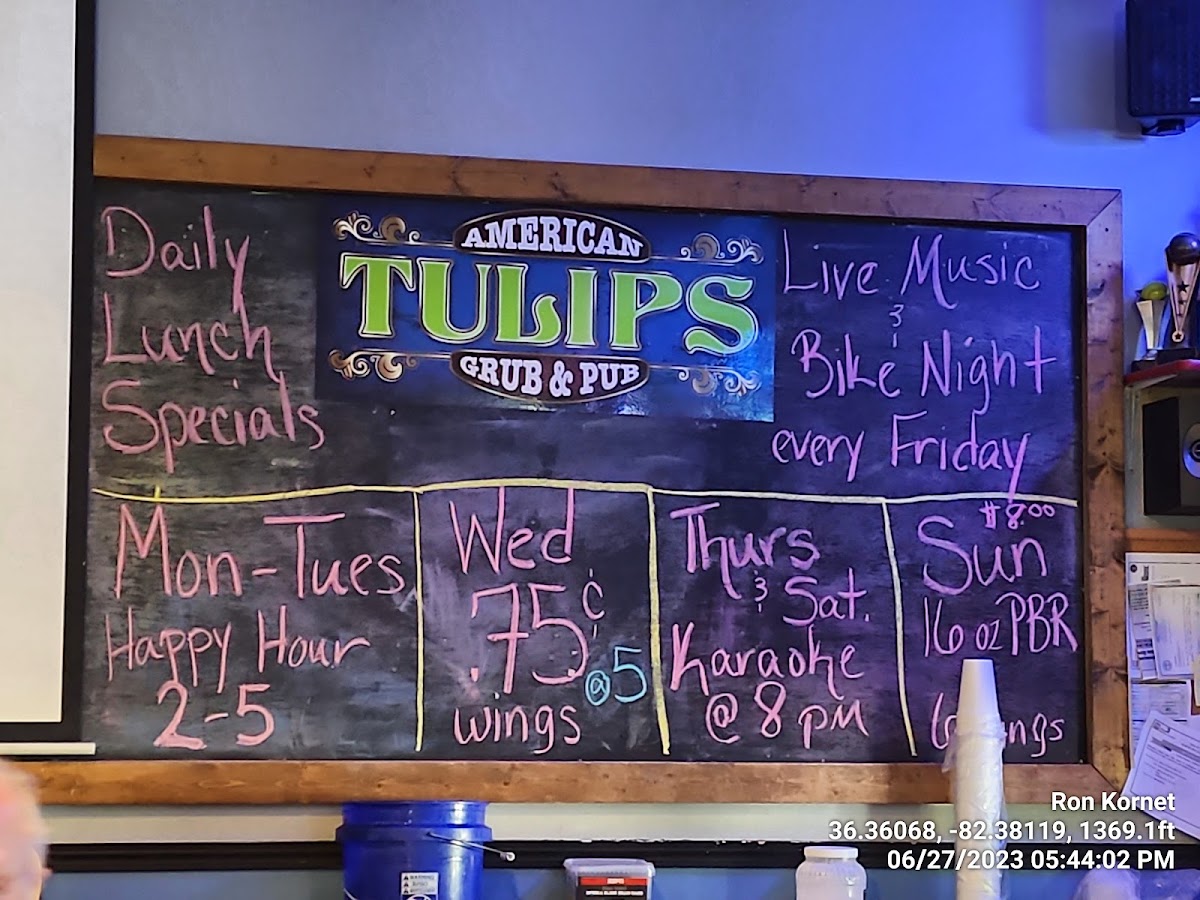 Daily
Lunch
Specials
AMERICAN
TULIPS
GRUB & PUB
Live Music
&
Bike Night
every Friday
Mon-Tues
Happy Hour
2-5
Wed
.75¢
@5
wings
Thurs
& Sat.
Karaoke
@ 8 pm
$8.00
Sun
16 oz PBR
6
Ron Kornet
36.36068, -82.38119, 1369.1ft
06/27/2023 05:44:02 PM
WARNING